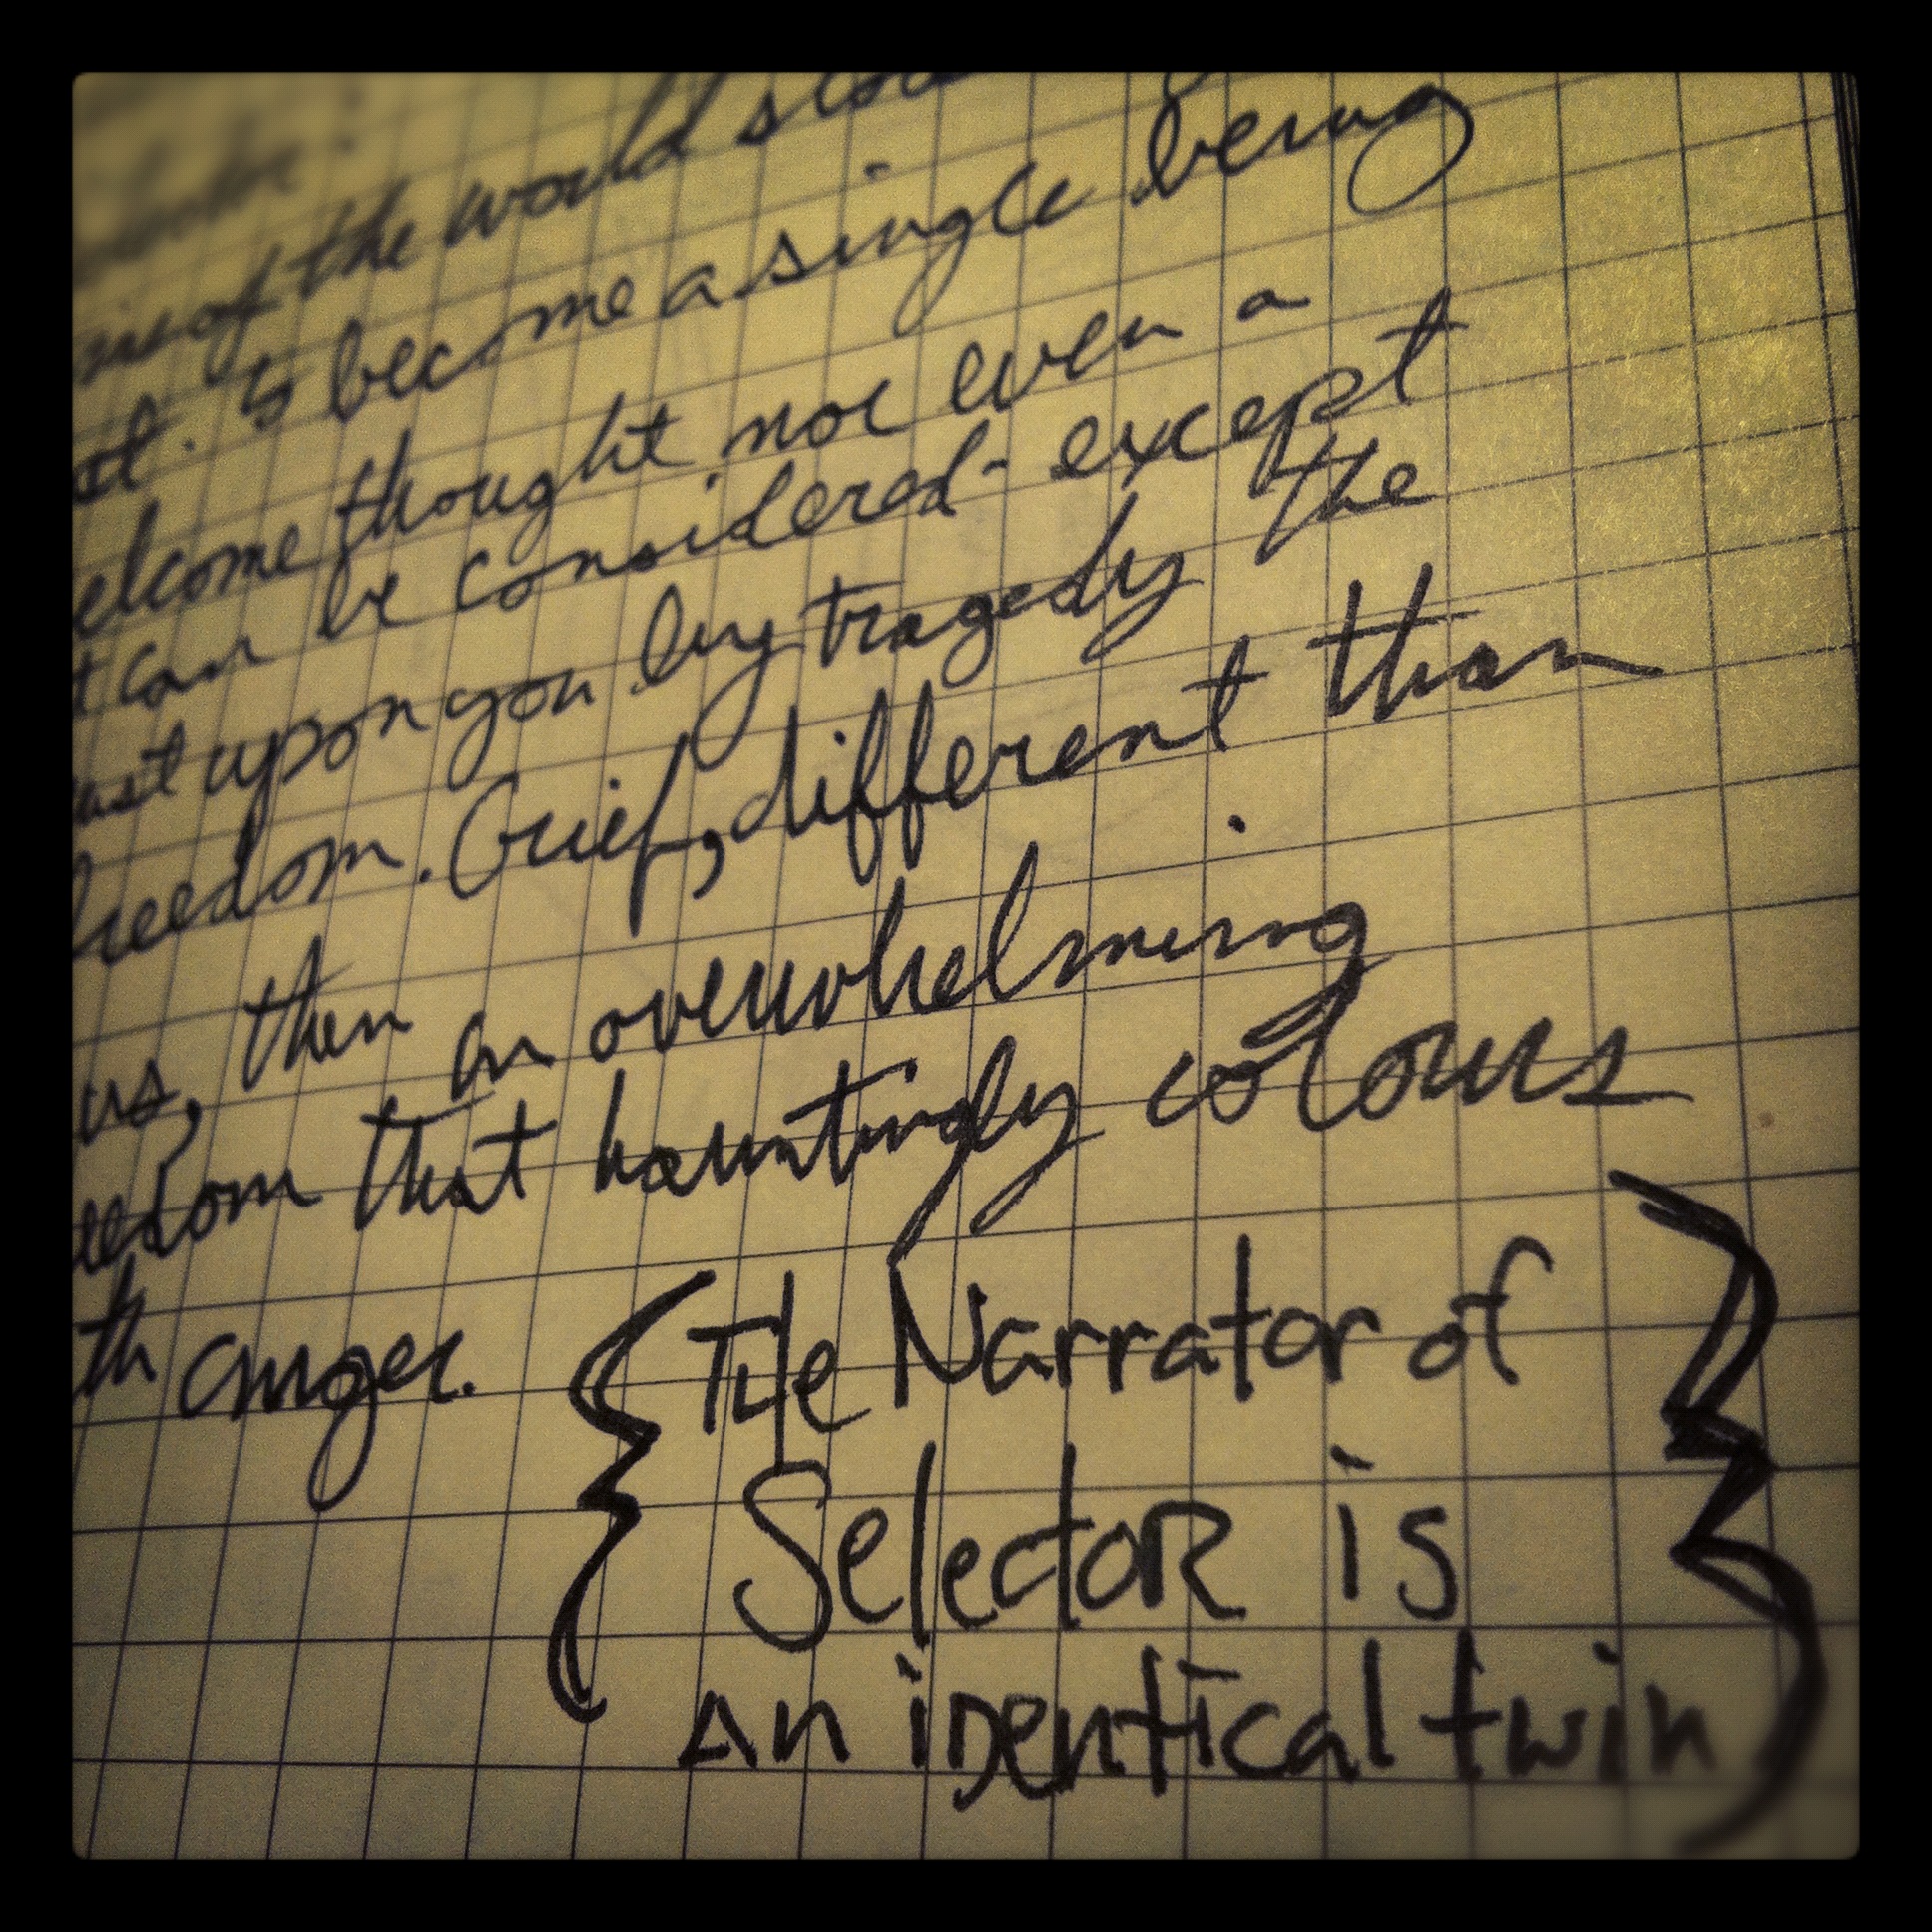 of the world
is become a single being
thought nor even a
can be considered - except
upon you by tragedy the
freedom. Grief, different than
us, then an overwhelming
that hauntingly colours
anger.
{The Narrator of
Selector is
an identical twin}